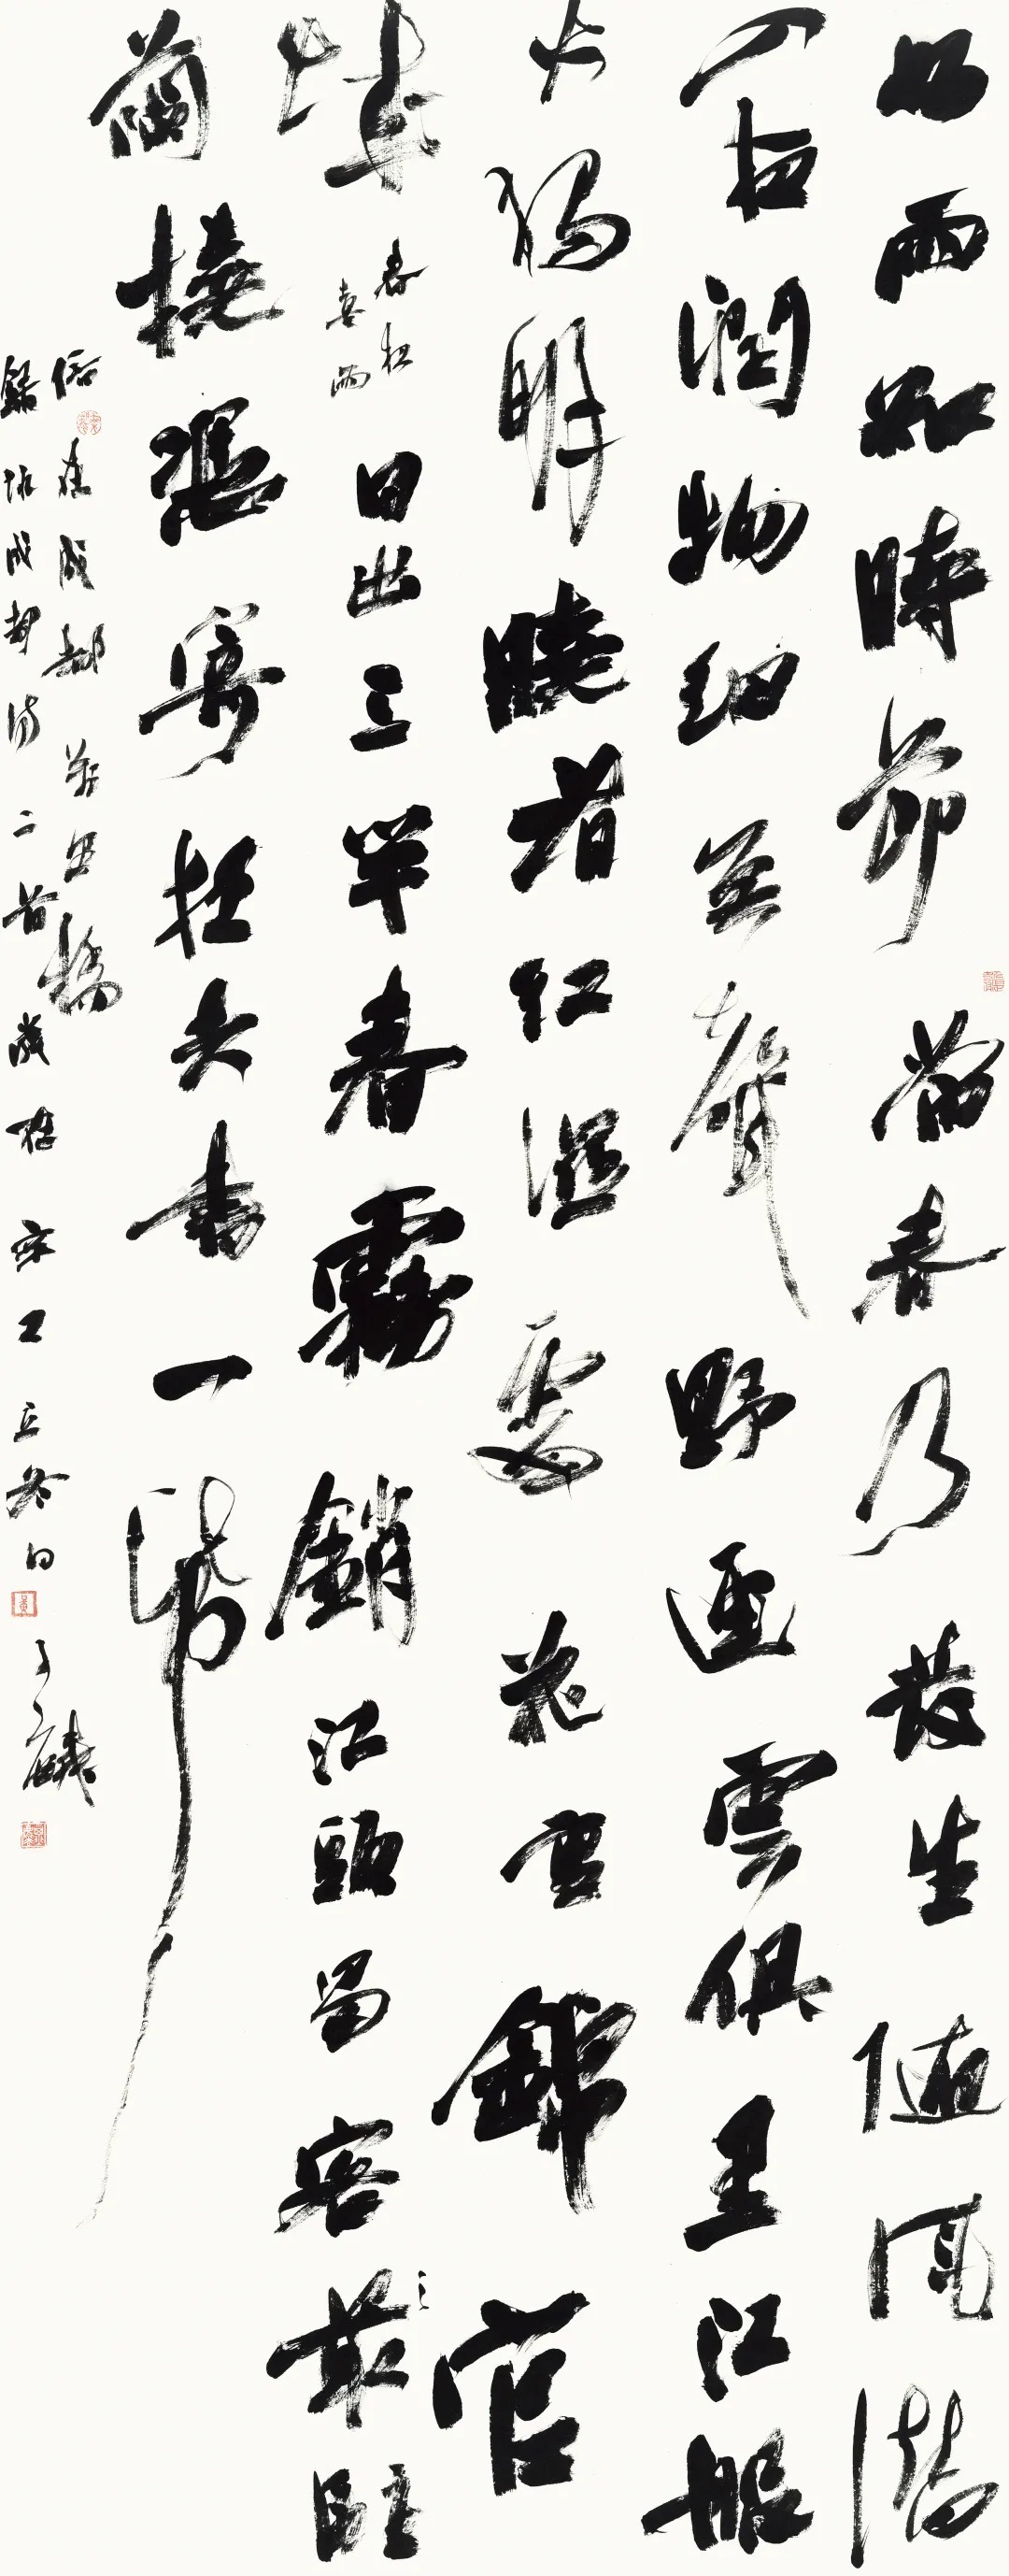 好雨知時節當春乃發生隨風潛
入夜潤物細無聲野逕雲俱黑江船
火獨明曉看紅濕處花重錦官
城 春夜喜雨 日出三竿春霧銷江頭蜀客最駐
蘭橈憑寄狂夫書一紙
住在成都萬里橋
錄詠成都詩二首歲在辛丑立冬日